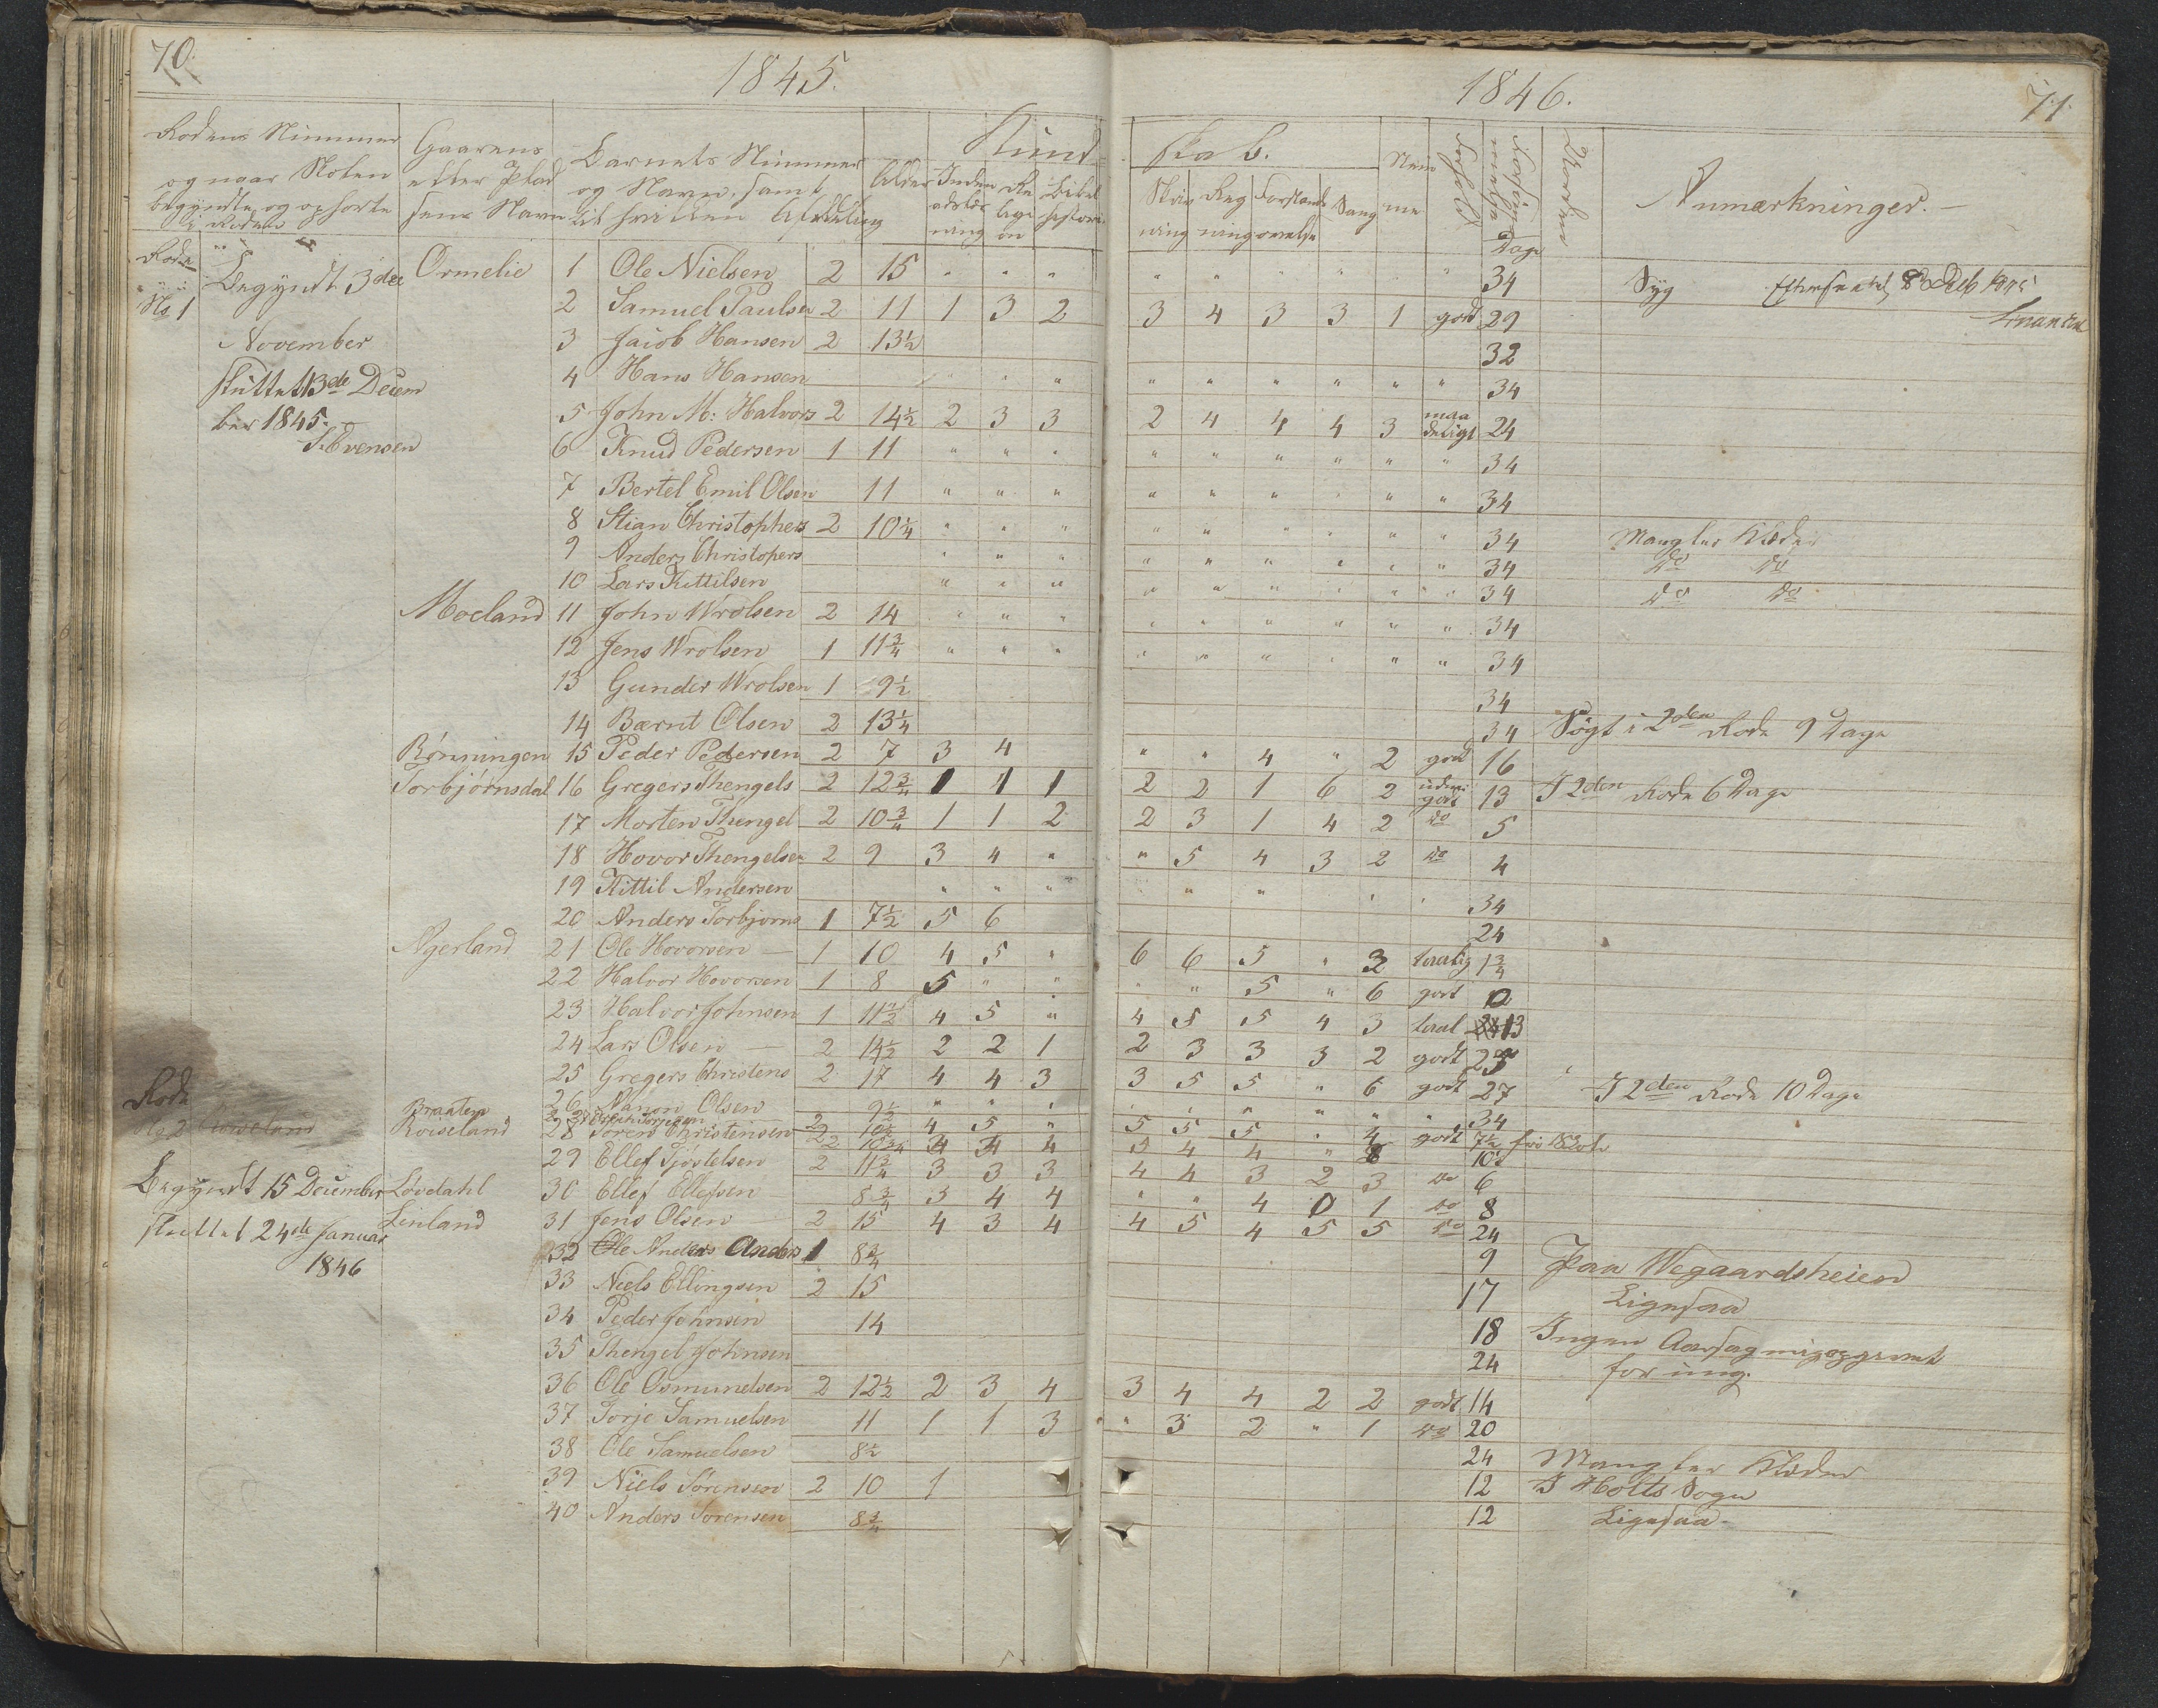 70.
1845.
Rodens Nummer og naar Skolen begyndte og ophorte i Roden
Gaarens eller Pladsens Navn
Barnets Nummer og Navn, samt til hvilken Afdeling
Alder
Kund-
Inden adslæsning
Religion
Bibelhistorie
Rode No 1
Begyndt 3die November sluttet 13de December 1845.
S. Evensen
Ormelie 1 Ole Nielsen 2 15 " " "
2 Samuel Paulsen 2 11 1 3 2
3 Jacob Hansen 2 13½
4 Hans Hansen " "
5 John M: Halvors 2 14½ 2 3 3
6 Knud Pedersen 1 11 " " "
7 Bertel Emil Olsen 11 " " "
8 Stian Christophers 2 10¼ " " "
9 Anders Christopers " " "
10 Lars Kittilsen " " "
Moeland 11 John Wrolsen 2 14 " " "
12 Jens Wrolsen 1 11¾ " " "
13 Gunder Wrolsen 1 9½
14 Bærnt Olsen 2 13¼
Rønningen 15 Peder Pedersen 2 7 3 4
Torbjørnsdal 16 Gregers Thengels 2 12¾ 1 1 1
17 Morten Thengel 2 10¾ 1 1 2
18 Hovor Thengelsen 2 9 3 4 "
19 Kittil Andersen " " "
20 Anders Torbjorns 1 7½ 5 6
Agerland 21 Ole Hovorsen 1 10 4 5 "
22 Halvor Hovorsen 1 8 5 " "
23 Halvor Johnsen 1 11½ 4 5 "
24 Lars Olsen 2 14½ 2 2 1
25 Gregers Christens 2 17 4 4 3
Rode No 2
Begyndt 15 December sluttet 24de Januar 1846
Braaten 26 Olsen 9½ " " "
Roiseland
28 Søren Christensen
29 Ellef Tjøstelsen 2 11¾ 3 3 3
Løvdahl 30 Ellef Ellefsen 8¾ 3 4 4
Linland 31 Jens Olsen 2 15 4 3 4
32 Ole Anders Anders 1 8¾
33 Niels Ellingsen 2 15
34 Peder Johnsen 14
35 Thengel Johnsen
36 Ole Osmundsen 2 12½ 2 3 4
37 Torje Samuelsen 11 1 1 3
38 Ole Samuelsen 8½
39 Niels Sørensen 2 10 1
40 Anders Sørensen 8¾
1846.
71.
skab.
Skrivning
Regning
Forstandsøvelse
Sang
Nemme
Forhold
Forsømmelse Dage
Anmærkninger.
" " " " " " 34 Syg
3 4 3 3 1 godt 29
32
" " " " " " 34
2 4 4 4 3 maadeligt 24
" " " " " " 34
" " " " " " 34
" " " " " " 34 Mangler Klæder
" " " " " " 34 do do
" " " " " " 34 do do
" " " " " " 34
" " " " " " 34
34
34 Søgt i 2den Rode 9 Dage
" " 4 " 2 godt 16
2 2 1 6 2 godt 13 I 2den Rode 6 Dage
2 3 1 4 2 do 5
" 5 4 3 2 do 4
34
24
6 6 5 " 3 taalig 1¾
" " 5 " 6 godt 12
4 5 5 4 3 taal 13
2 3 3 3 2 godt 25
3 5 5 " 6 godt 27 I 2den Rode 10 Dage
" " " " " " 34
5 5 5 " 4 godt 7½
5 4 4 " 10
4 4 3 2 3 do 6
" " 4 0 1 do 8
4 5 4 5 5 do 24
9 Paa Wegaardsheien
17 Ligesaa
18 Ingen Aarsag mig opgivet
24 for ung.
3 4 4 2 2 godt 14
" 3 2 " 1 do 20
24 Mangler Klæder
12 I Holts Sogn
12 Ligesaa